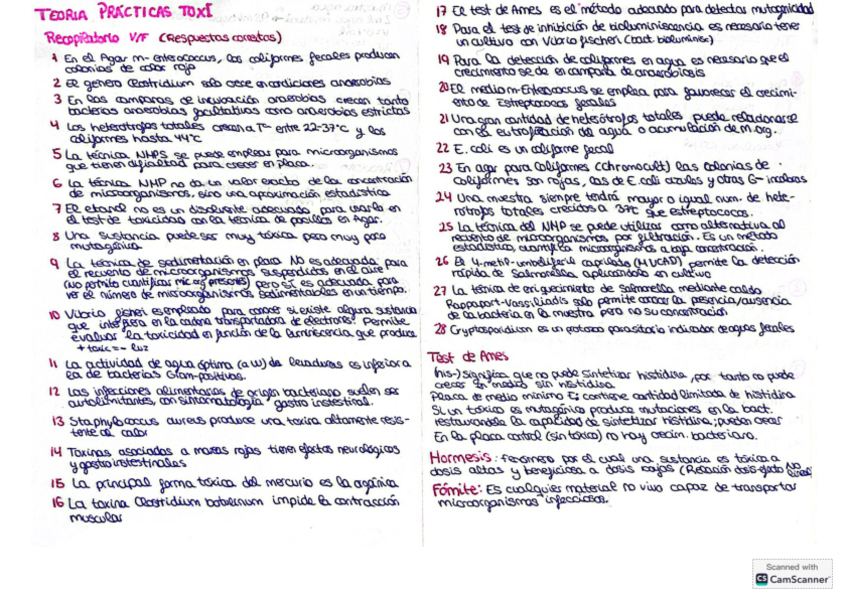 TEORIA PRÁCTICAS TOXI
Recopilatorio V/F (Respuestas correctas)
1 En el Agar m-enterococcus, los coliformes fecales producen
colonias de color rojo
2 El género Clostridium solo crece en condiciones anaerobias
3 En las campanas de incubación anaerobias crecen tanto
bacterias anaerobias facultativas como anaerobias estrictas
4 Los heterótrofos totales crecen a Tª entre 22-37ºC y los
coliformes hasta 44ºC
5 La técnica NHPS se puede emplear para microorganismos
que tienen dificultad para crecer en placa.
6 La técnica NHP no da un valor exacto de la concentración
de microorganismos, sino una aproximación estadística
7 El etanol no es un disolvente adecuado para usarlo en
el test de toxicidad con la técnica de pocillos en Agar.
8 Una sustancia puede ser muy tóxica pero muy poco
mutagénica
9 La técnica de sedimentación en placa NO es adecuada para
el recuento de microorganismos suspendidos en el aire
(no permite cuantificar mic. org presentes) pero sí es adecuada para
ver el número de microorganismos sedimentables en un tiempo.
10 Vibrio fisheri es empleado para conocer si existe alguna sustancia
que interfiera en la cadena transportadora de electrones. Permite
evaluar la toxicidad en función de la luminiscencia que produce
+ toxic = - luz
11 La actividad de agua óptima (aw) de levaduras es inferior a
la de bacterias Gram-positivas.
12 Las infecciones alimentarias de origen bacteriano suelen ser
autolimitantes, con sintomatología gastrointestinal.
13 Staphylococcus aureus produce una toxina altamente resis-
tente al calor
14 Toxinas asociadas a mareas rojas tienen efectos neurológicos
y gastrointestinales
15 La principal forma tóxica del mercurio es la orgánica
16 La toxina Clostridium botulinum impide la contracción
muscular
17 El test de Ames es el método adecuado para detectar mutagenicidad
18 Para el test de inhibición de bioluminiscencia es necesario tener
un cultivo con Vibrio fischeri (bact. bioluminisc)
19 Para la detección de coliformes en agua es necesario que el
crecimiento se de en campana de anaerobiosis
20 El medio m-Enterococcus se emplea para favorecer el crecimi-
ento de Estreptococos fecales
21 Una gran cantidad de heterótrofos totales puede relacionarse
con la eutrofización del agua o acumulación de m.org.
22 E. coli es un coliforme fecal
23 En agar para Coliformes (Chromocult) las colonias de
coliformes son rojas, las de E.coli azules y otras G- incoloras
24 Una muestra siempre tendrá mayor o igual num. de hete-
rótrofos totales crecidos a 37ºC que estreptococos.
25 La técnica del NMP se puede utilizar como alternativa al
recuento de microorganismos por filtración. Es un método
estadístico, cuantifica microorganismos a baja concentración.
26 El 4-metil-umbeliferil caprilato (MUCAP) permite la detección
rápida de Salmonella aplicándolo en cultivo
27 La técnica de enriquecimiento de Salmonella mediante caldo
Rappaport-Vassiliadis solo permite conocer la presencia/ausencia
de la bacteria en la muestra pero no su concentración
28 Cryptosporidium es un protozoo parasitario indicador de aguas fecales
Test de Ames
(his-) significa que no puede sintetizar histidina, por tanto no puede
crecer en medios sin histidina
Placa de medio mínimo E: contiene cantidad limitada de histidina
Si un tóxico es mutagénico produce mutaciones en la bact.
restaurándole la capacidad de sintetizar histidina, pueden crecer
En la placa control (sin tóxico) no hay crecim. bacteriano.
Hormesis: fenómeno por el cual una sustancia es tóxica a
dosis altas y beneficiosa a dosis bajas (Relación dosis-efecto NO lineal)
Fómite: Es cualquier material no vivo capaz de transportar
microorganismos infecciosos.
Scanned with
CS CamScanner